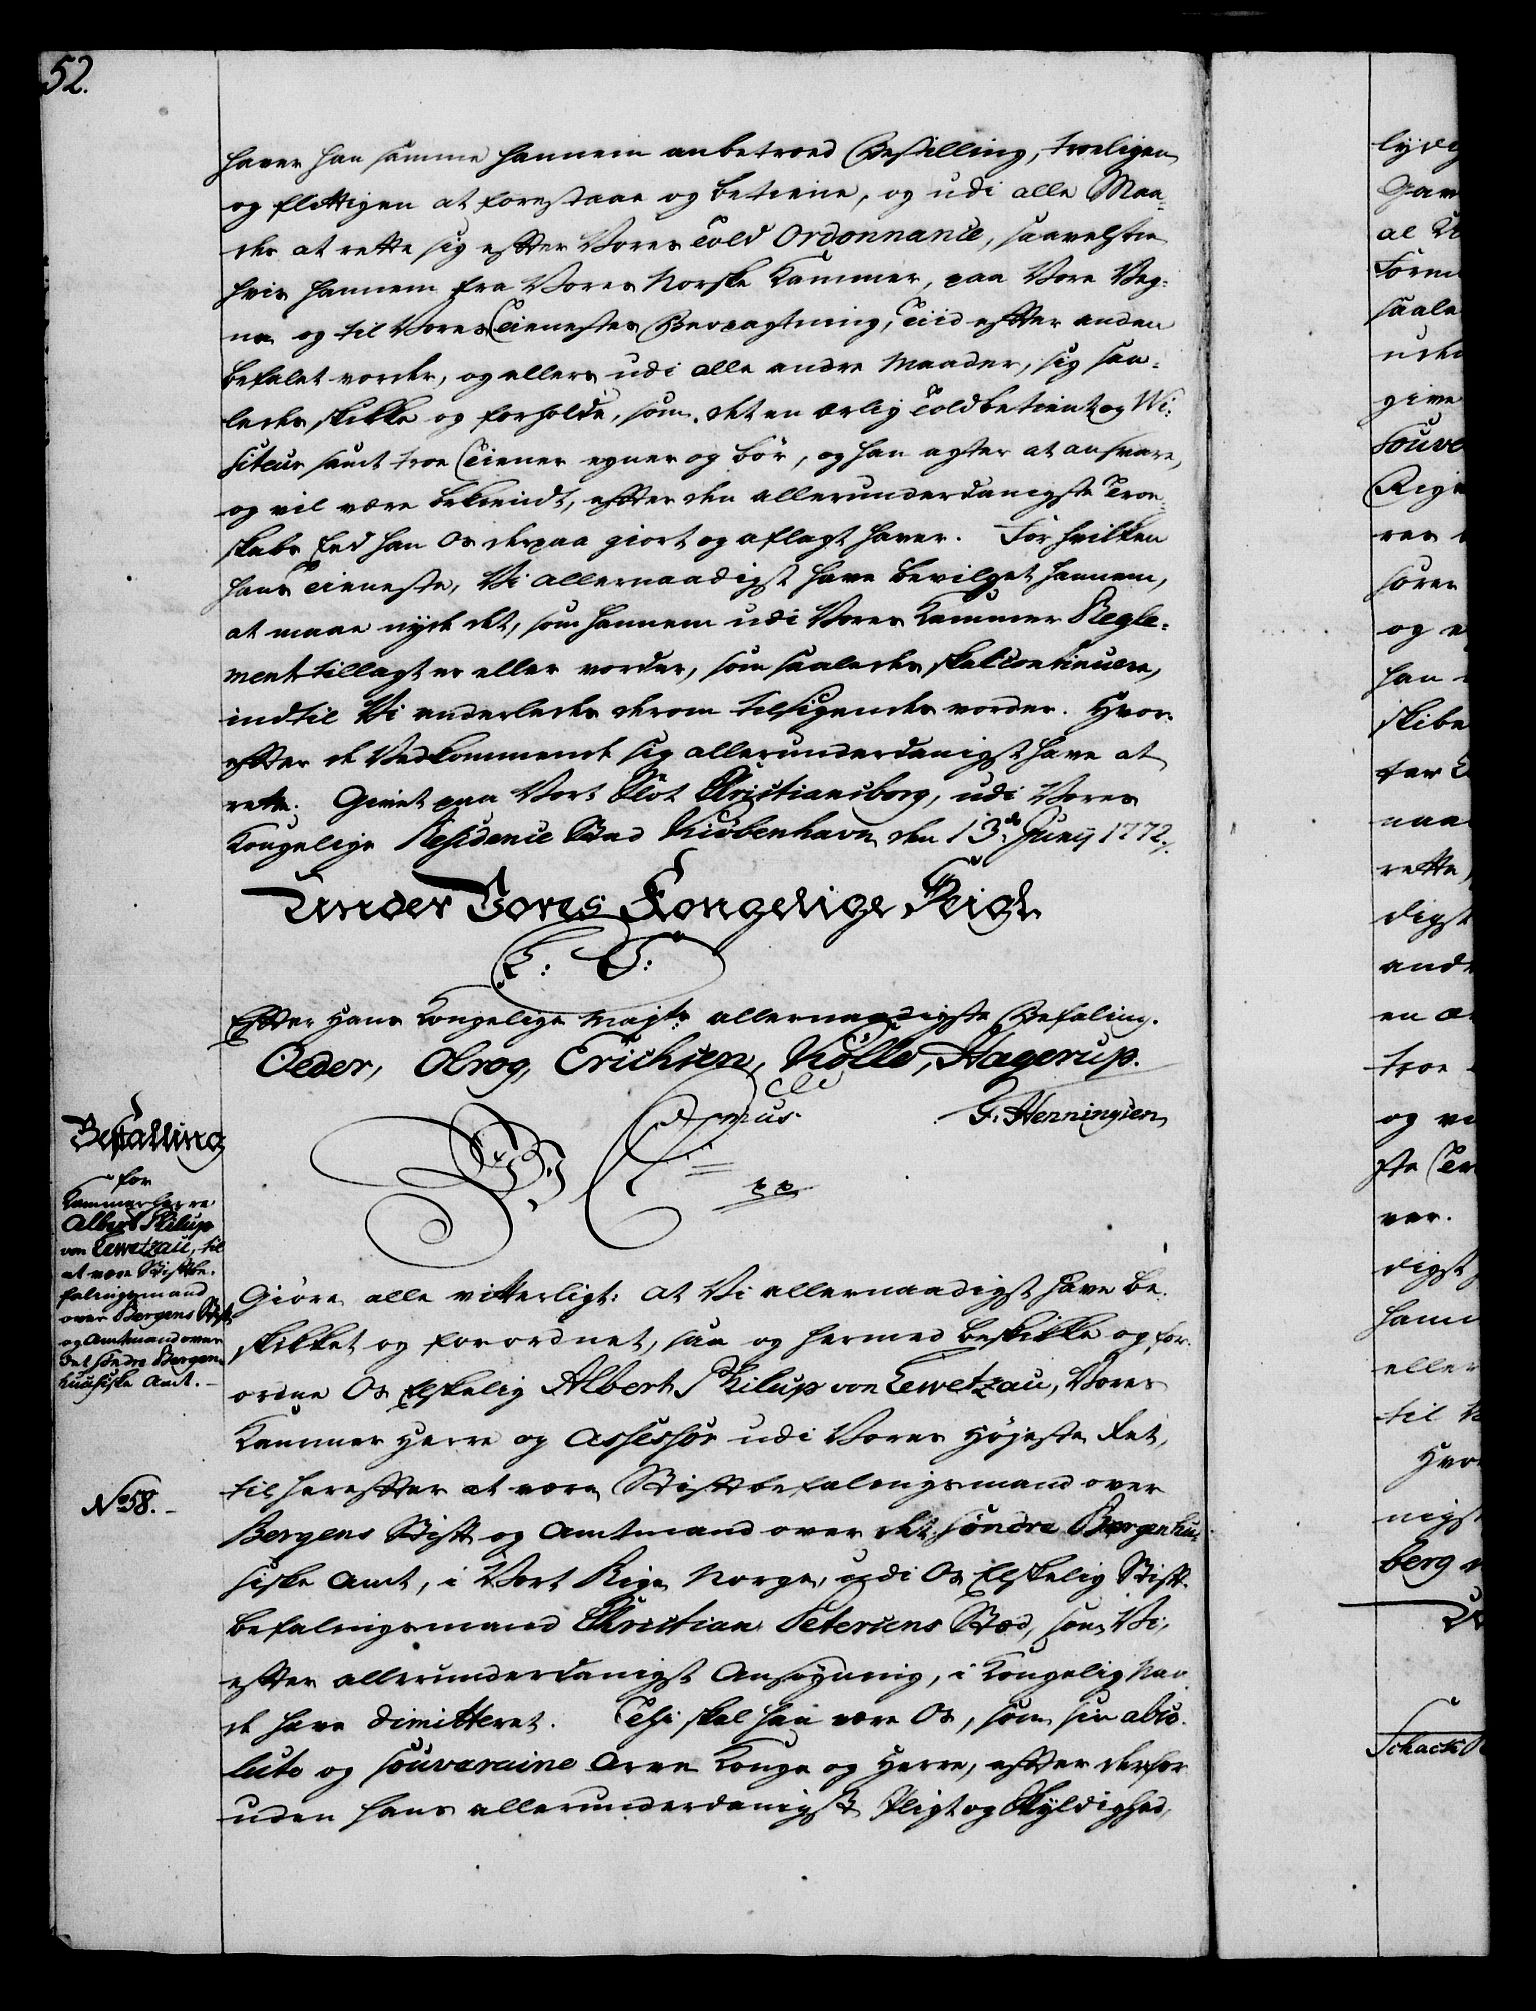 52.
haver han samme hannem anbetroed Bestilling, troeligen
og flittigen at forestaae og betiene, og udi alle Maa-
der at rette sig efter Vores Told Ordonnance, saavelsom
hvis hannem fra Vores Norske Kammer, paa Vore Veg-
ne og til Vores Tienestes Beopagtning, Tiid efter anden
befalet vorder, og ellers udi alle andre Maader, sig saa-
ledes skikke og forholde, som det en ærlig Toldbetient og Vi-
siteur samt troe Tiener egner og bör, og han agter at ansvare,
og vil være bekiendt, efter den allerunderdanigste Troe-
skabs Eed han Os derpaa giort og aflagt haver. For hvilken
hans Tieneste, Vi allernaadigst have bevilget hannem,
at maae nyde det, som hannem udi Vores Kammer Regle-
ment tillagt er eller vorder, som saaledes skal continuere,
indtil Vi anderledes derom tilsigendes vorder. Hvor-
efter de Vedkommende sig allerunderdanigst have at
rette. Givet paa Vort Slot Christiansborg, udi Vores
Kongelige Residence Stad Kiöbenhavn, den 13de Junij 1772./.
Under Vores Kongelige Seigl
L: S:
Efter Hans Kongelige Majts: allernaadigste Befaling.
Oeder, Obrog, Erichsen, Kölle, Hagerup.
G. Henningsen
Bestalling
for
Kammerherre
Albert Philip
von Lewetzau, til
at være Stiftbe-
falingsmand
over Bergens Stift
og Amtmand over
det söndre Bergen-
huusiske Amt.
No 58.
Giöre alle vitterligt: at Vi allernaadigst have be-
skikket og forordnet, saa og hermed beskikke og for-
ordne Os Elskelig Albert Philip von Lewetzau, Vores
Kammer Herre og Assessor udi Vores Höjeste Ret,
til herefter at være Stiftbefalingsmand over
Bergens Stift og Amtmand over det söndre Bergenhu-
siske Amt, i Vort Rige Norge, udi Os Elskelig Stift-
befalingsmand Christian Petersens Stæd, som Vi,
efter allerunderdanigst Ansögning, i Kongelig Naa-
de have dimitteret. Thi skal han være Os, som sin abso-
lute og souveraine Arve Konge og Herre, efter derfor-
uden hans allerunderdanigste Pligt og Skyldighed,